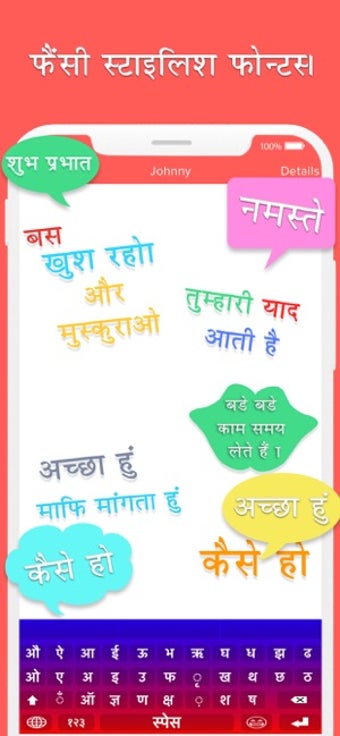 फैंसी स्टाइलिश फोन्टस।
100%
शुभ प्रभात
Johnny
Details
नमस्ते
बस
खुश रहोा
और
मुस्कुराओ
तुम्हारी याद
आती है
बडे बडे
काम समय
लेते हैं ।
अच्छा हुं
माफि मांगता हुं
अच्छा हुं
कैसे हो
कैसे हो
औ ऐ आ ई ऊ भ ऋ घ ध झ ढ
ओ ए अ इ उ फ ृ ख थ छ ठ
ँ ऑ ज्ञ ण क्ष ़ श ष
१२३ स्पेस